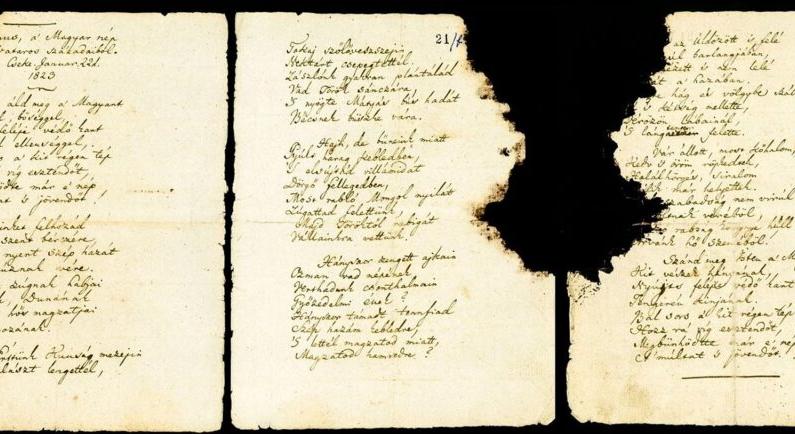 a' Magyar nép
zivataros századaiból.
Cseke, Januar 22d.
1823
áld meg a' Magyart
bőséggel,
védő kart
ellenséggel,
a' kit régen tép
víg esztendőt,
már e' nép
's jövendőt!
felhozád
szent bérczére,
nyert szép hazát
vére.
zúgnak habjai
Dunának
hős magzatjai
Kúnság mezején
lengettél,
21/
Tokaj szőlővesszejein
Nektárt csepegtettél.
Zászlónk gyakran plántálád
Vad Török sánczára,
'S nyögte Mátyás bús hadát
Bécsnek büszke vára.
Hajh, de bűneink miatt
Gyúlt harag kebledben,
'S elsujtád villámidat
Dörgő fellegedben,
Most rabló Mongol nyilát
Zúgattad felettünk,
Majd Töröktől rabigát
Vállainkra vettünk.
Hányszor zengett ajkain
Ozman vad népének
Vert hadunk csonthalmain
Győzedelmi ének?
Hányszor támadt tenfiad
Szép hazám kebledre,
'S lettél magzatod miatt,
Magzatod hamvedre?
az üldözött 's felé
barlangjában,
's nem lelé
a' hazában.
hág és völgybe száll
'S kétség mellette,
Vérözön lábainál,
'S lángtenger felette.
Vár állott, most kőhalom,
Kedv 's öröm röpkedtek,
Halálhörgés, siralom
már helyettek.
szabadság nem virúl
véréből,
rabság könnye hull
hő szeméből.
Szánd meg Isten a' M
Kit vészek hányának,
Nyújts feléje védő kart
Tengerén kínjának.
Bal sors a' kit régen tép
Hozz rá víg esztendőt,
Megbünhödte már e' nép
A' múltat 's jövendőt!